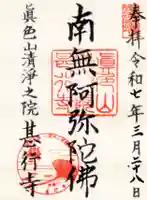 奉拝 令和七年三月二十八日
南無阿弥陀佛
眞色山清淨之院 甚行寺